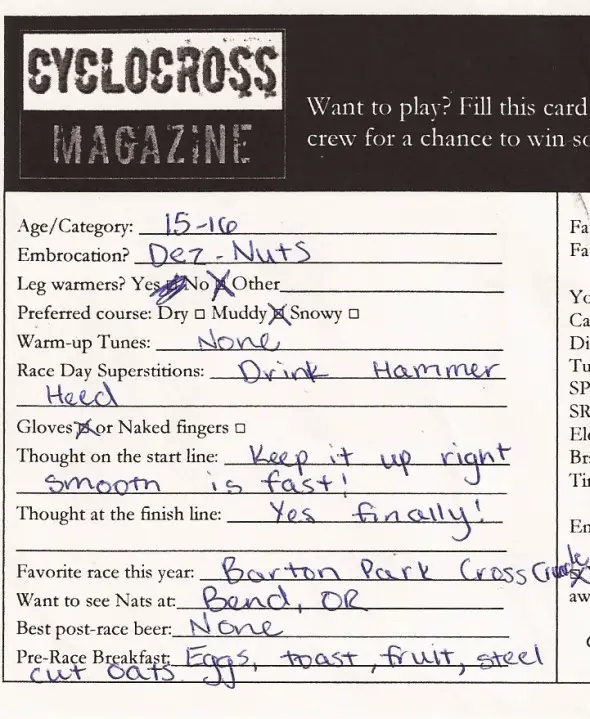 CYCLOCROSS
MAGAZINE
Want to play? Fill this card
crew for a chance to win so
Age/Category: 15-16
Embrocation? Dez-Nuts
Leg warmers? Yes No Other
Preferred course: Dry □ Muddy Snowy □
Warm-up Tunes: None
Race Day Superstitions: Drink Hammer
Heed
Gloves or Naked fingers □
Thought on the start line: Keep it up right
smooth is fast!
Thought at the finish line: Yes finally!
Favorite race this year: Barton Park Cross Crusade
Want to see Nats at: Bend, OR
Best post-race beer: None
Pre-Race Breakfast: Eggs, toast, fruit, steel
cut oats
Fa
Fa
Yo
Ca
Di
Tu
SP
SR
Ele
Bra
Tir
En
aw